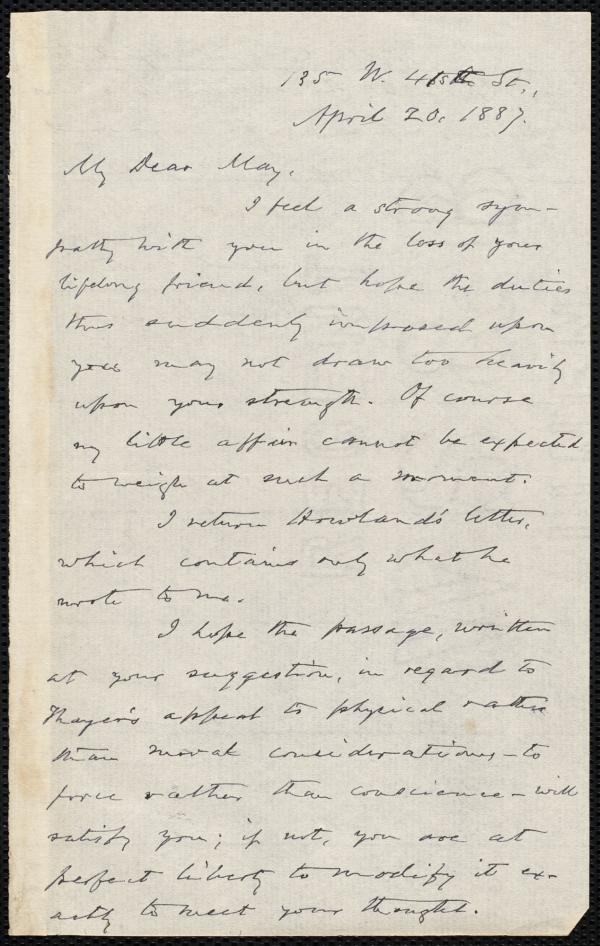 135 W. 41st St.,
April 20, 1887.
My Dear May,
I feel a strong sym-
pathy with you in the loss of your
lifelong friend, but hope the duties
thus suddenly imposed upon
you may not draw too heavily
upon your strength. Of course
my little affair cannot be expected
to weigh at such a moment.
I return Howland's letter,
which contains only what he
wrote to me.
I hope the passage, written
at your suggestion, in regard to
Thayer's appeal to physical rather
than moral considerations – to
force rather than conscience – will
satisfy you; if not, you are at
perfect liberty to modify it ex-
actly to meet your thought.